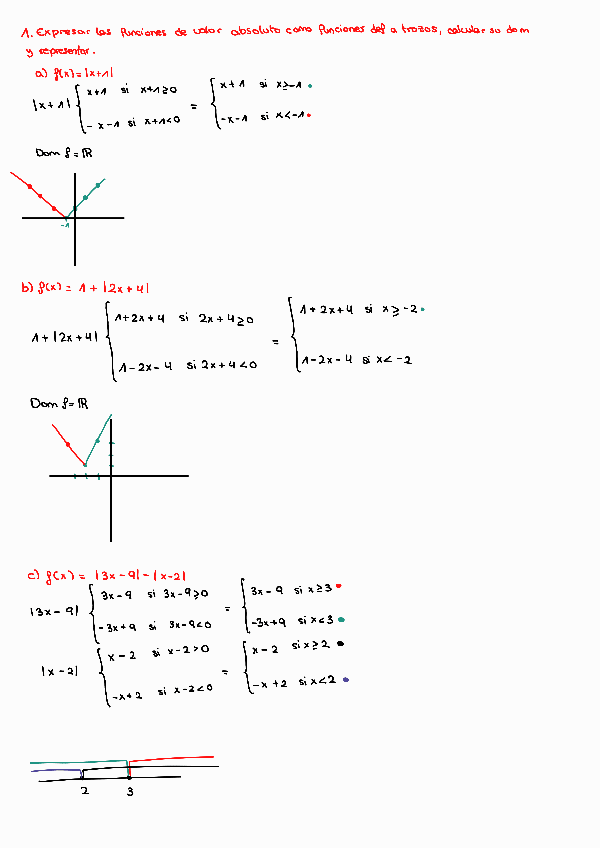 1. Expresar las funciones de valor absoluto como funciones def a trozos, calcular su dom
y representar.
a) f(x)=|x+1|
|x+1| { x+1 si x+1≥0 = { x+1 si x≥-1
-x-1 si x+1<0 -x-1 si x<-1
Dom f = ℝ
-1
b) f(x) = 1 + |2x+4|
1+|2x+4| { 1+2x+4 si 2x+4≥0 = { 1+2x+4 si x≥-2
1-2x-4 si 2x+4<0 1-2x-4 si x<-2
Dom f=ℝ
c) f(x) = |3x-9|-|x-2|
|3x-9| { 3x-9 si 3x-9≥0 = { 3x-9 si x≥3
-3x+9 si 3x-9<0 -3x+9 si x<3
|x-2| { x-2 si x-2>0 = { x-2 si x≥2
-x+2 si x-2<0 -x+2 si x<2
2 3